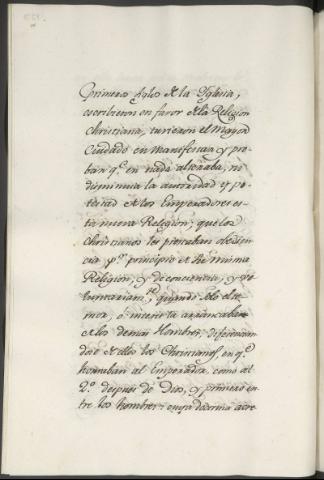 primeros siglos de la Yglesia,
escribieron en favor de la Religion
Christiana, tuvieron el mayor
Cuidado en manifestar y pro-
bar q.e en nada alteraba, ni
disminuia la autoridad y po-
testad de los Emperadores es-
ta nueva Religion; que los
Christianos les prestaban obedien-
cia p.r principio de la misma
Religion, y de conciencia, y vo-
luntariam.te, quando solo el te-
mor, ó interes la arrancaban
de los demas Hombres; diferencian-
dose de ellos los Christianos, en q.e
honraban al Emperador, como al
2.o despues de Dios, y primero en-
tre los hombres: cuya doctrina